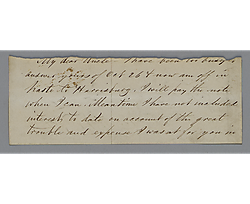 My dear Uncle I have been too busy to
answer yours of Oct 26 & now am off in
haste to Harrisburg. I will pay the note
when I can. Meantime I have not included
interest to date on account of the great
trouble and expense I was at for you in